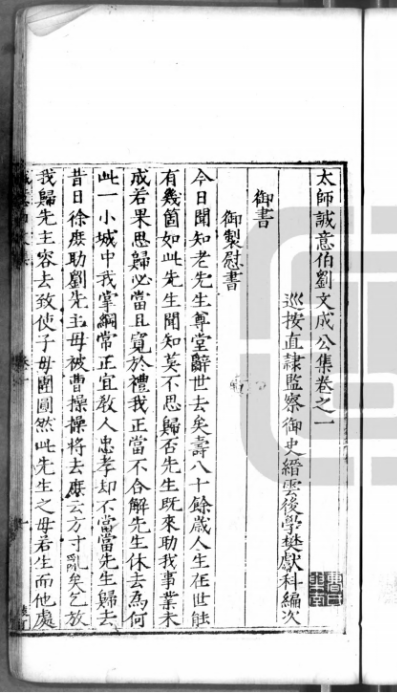 太師誠意伯劉文成公集卷之一
巡按直隸監察御史縉雲後學樊獻科編次
御書
御製慰書
今日聞知老先生尊堂辭世去矣壽八十餘歲人生在世能
有幾箇如此先生聞知莫不思歸否先生既來助我事業未
成若果思歸必當且寬於禮我正當不合解先生休去為何
此一小城中我掌綱常正宜教人忠孝却不當當先生歸去
昔日徐庶助劉先主母被曹操操將去庶云方寸亂矣乞放
我歸先主容去致使子母團圓然此先生之母若生而他處